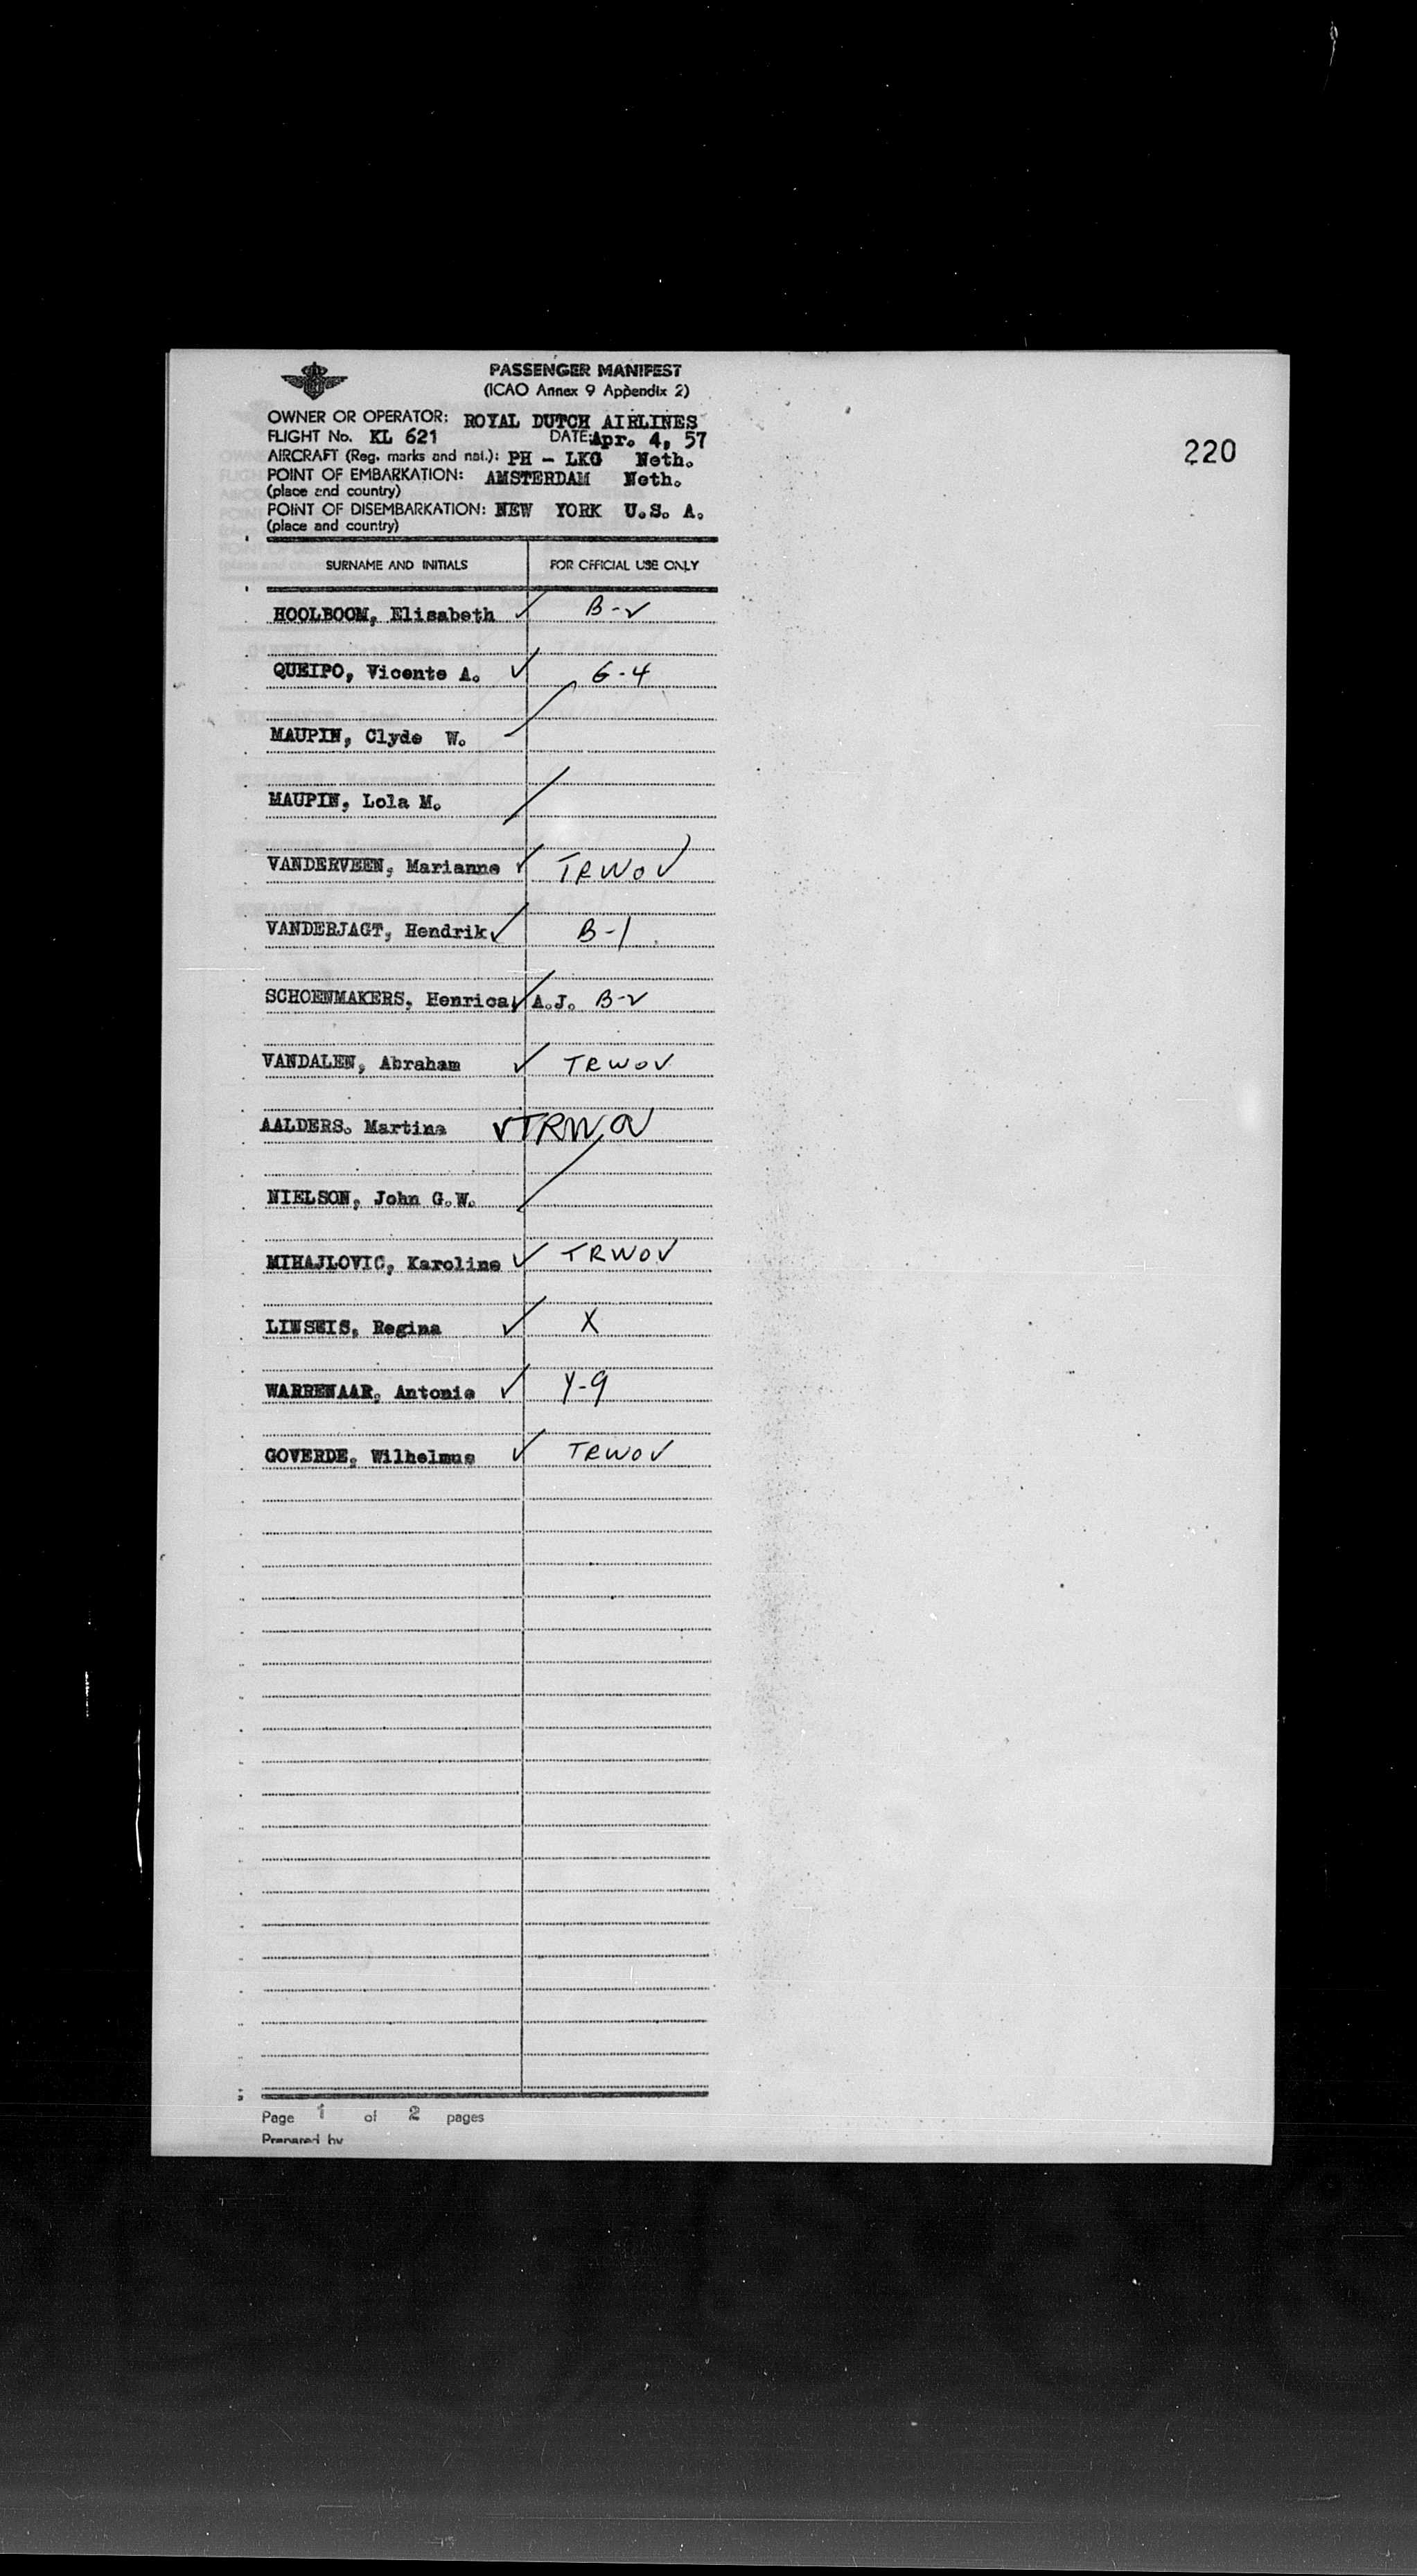 PASSENGER MANIFEST
(ICAO Annex 9 Appendix 2)
OWNER OR OPERATOR: ROYAL DUTCH AIRLINES
FLIGHT No. KL 621 DATE: Apr. 4, 57
220
AIRCRAFT (Reg. marks and nat.): PH - LKG Neth.
POINT OF EMBARKATION: AMSTERDAM Neth.
(place and country)
POINT OF DISEMBARKATION: NEW YORK U.S. A.
(place and country)
SURNAME AND INITIALS FOR OFFICIAL USE ONLY
HOOLBOOM, Elisabeth ✓ B-2
QUEIPO, Vicente A. ✓ G-4
MAUPIN, Clyde W.
MAUPIN, Lola M.
VANDERVEEN, Marianne ✓ TRWOV
VANDERJAGT, Hendrik ✓ B-1
SCHOENMAKERS, Henrica ✓ A.J. B-2
VANDALEN, Abraham ✓ TRWOV
AALDERS. Martina ✓ TRWOV
NIELSON, John G.W.
MIHAJLOVIC, Karoline ✓ TRWOV
LINSEIS, Regina ✓ X
WARRENAAR, Antonie ✓ Y-9
GOVERDE, Wilhelmus ✓ TRWOV
Page 1 of 2 pages
Prepared by